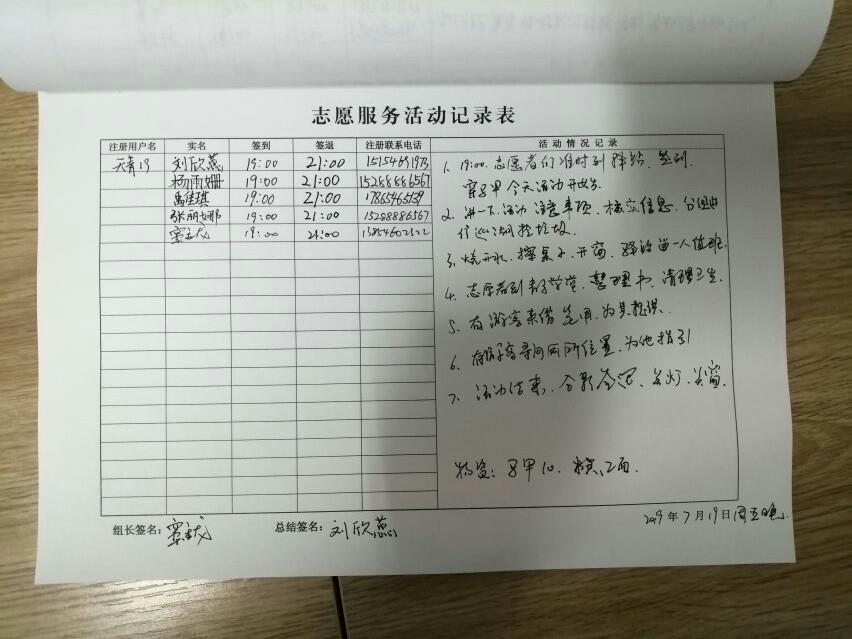 志愿服务活动记录表
注册用户名 实名 签到 签退 注册联系电话 活动情况记录
天青19 刘欣蕊 19:00 21:00
杨雨姗 19:00 21:00 15288886567
禹佳琪 19:00 21:00 17865465139
张丽娜 19:00 21:00 15288886567
19:00 21:00
1. 19:00. 志愿者们准时到驿站, 签到,
穿马甲 今天活动开始
2. 讲一下活动 注意事项, 核对信息, 分组进
行巡湖捡垃圾
3. 烧开水, 擦桌子, 开窗, 驿站留一人值班.
4. 志愿者到 整理书, 清理卫生.
5. 有游客来借 为其提供.
6. 有游客寻问厕所位置, 为他指引
7. 活动结束, 合影 关灯, 关窗.
物资: 马甲10, 2面.
组长签名: 总结签名: 刘欣蕊 2019年7月19日周五晚